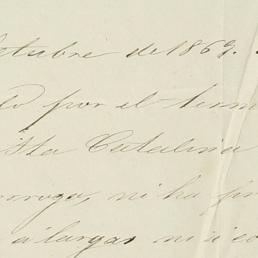 octubre de 1869.
do por el term
Sta Catalina
rroga, ni ha
a largas ni